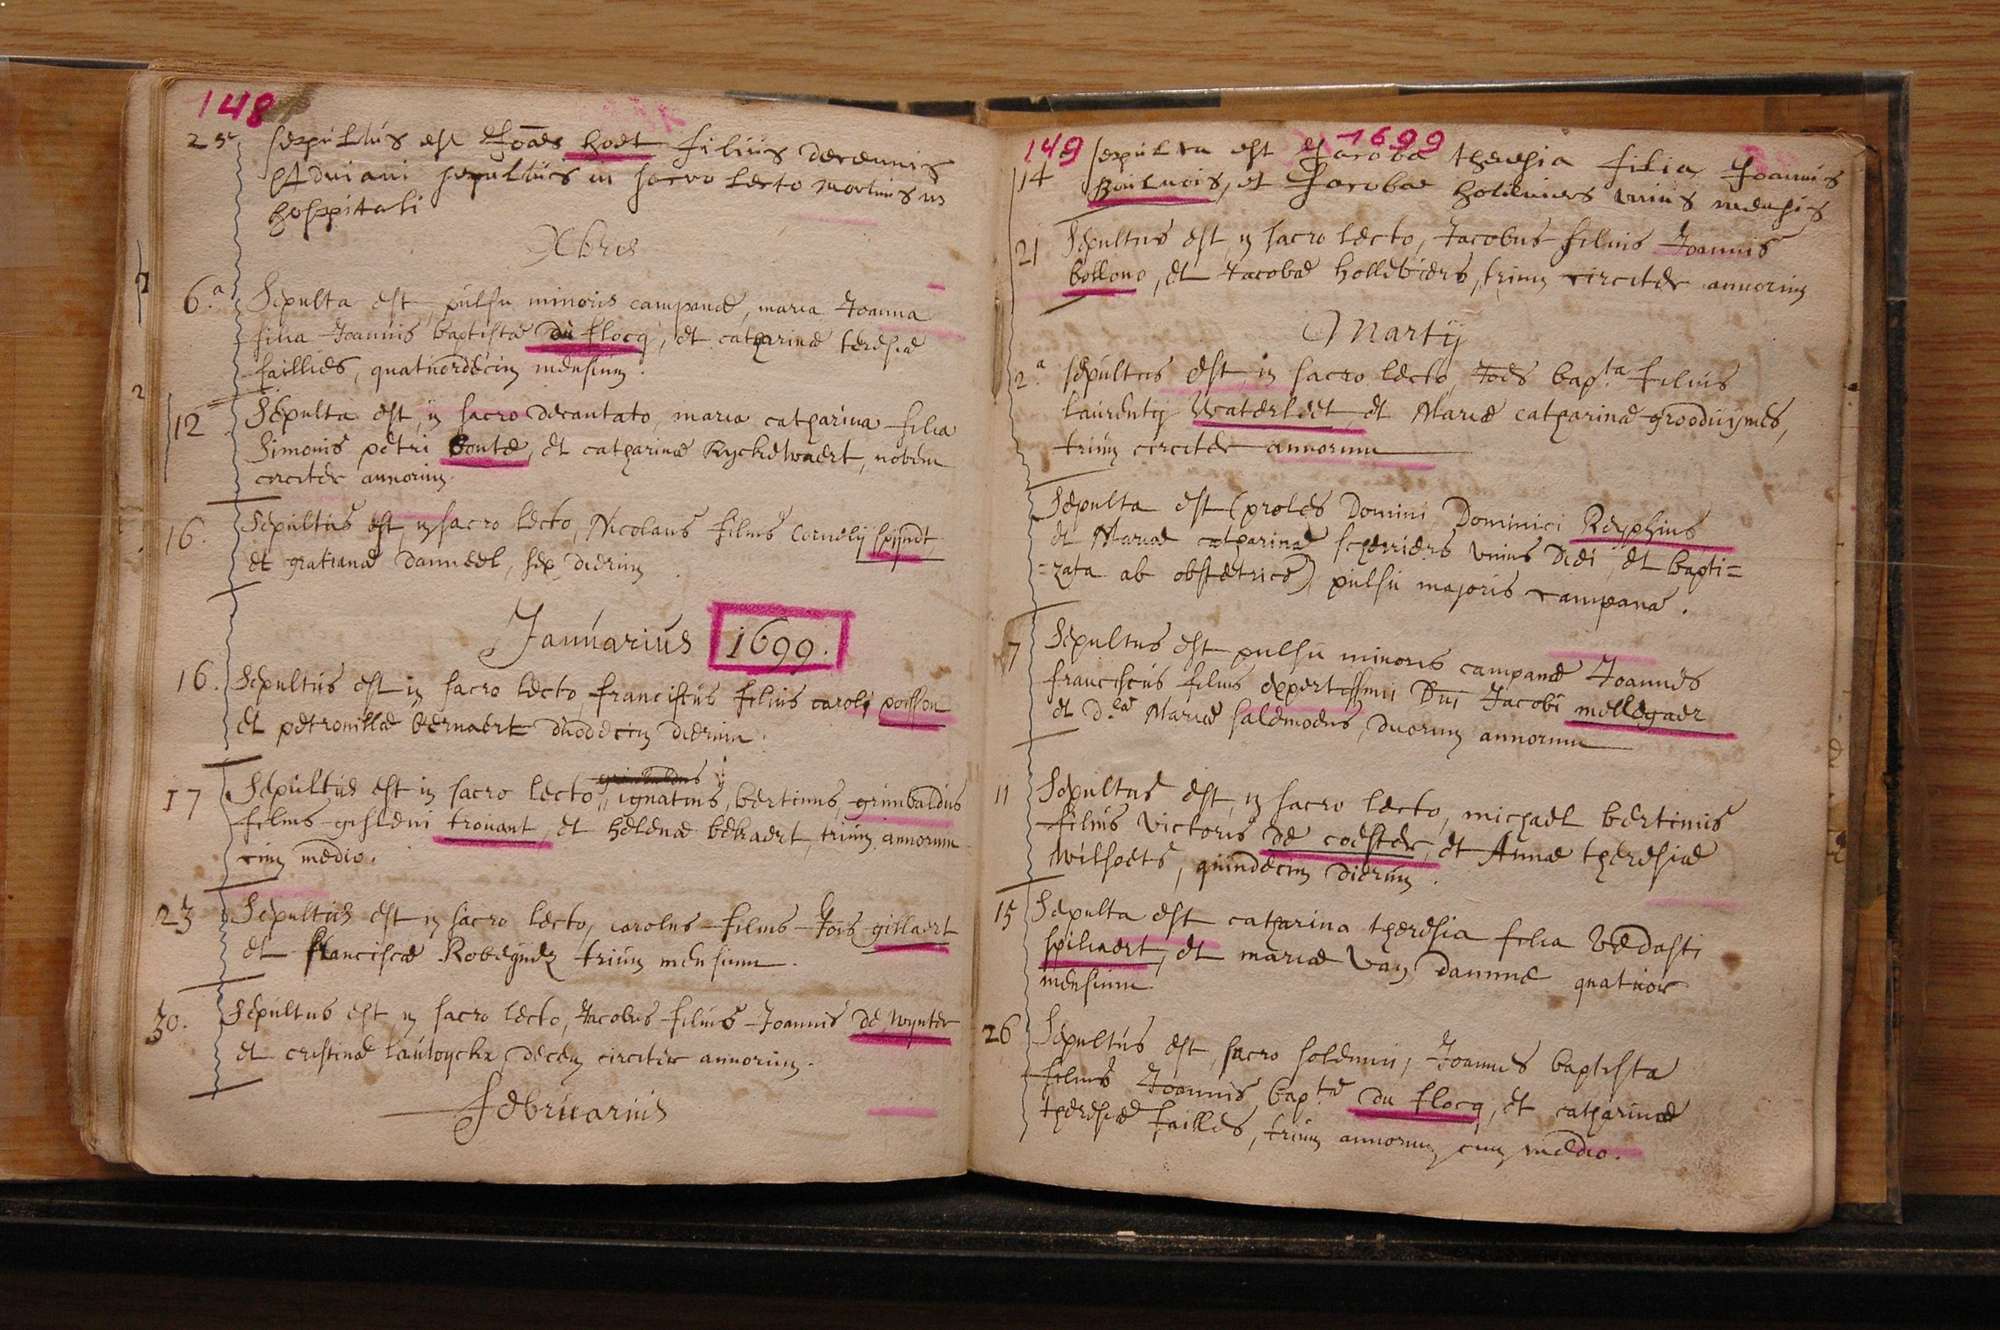 148
25 sepultus est Joães hoet filius decennis
Adriani sepultus in sacro lecto mortuus in
hospitali
Xbris
6.a Sepulta est, pulsu minoris campanæ, maria Joanna
filia Joannis baptistæ du flocq, et catharinæ teresiæ
faillies, quatuordecim mensium.
12 Sepulta est, in sacro decantato, maria catharina filia
Simonis petri bontæ, et catharinæ Ryckewaert, novem
circiter annorum
16. Sepultus est, in sacro lecto, Nicolaus filius Cornelij spijndt
et gratianæ danneel, sex dierum
Januarius 1699.
16. Sepultus est in sacro lecto, franciscus filius caroli poisson
et petronillæ bernaert duodecim dierum.
17 Sepultus est in sacro lecto, ignatius, bertinus, grimbaldus
filius gisleni trouant, et helenæ bekaert, trium annorum
cum medio.
23 Sepultus est in sacro lecto, carolus filius Jois gillaert
et franciscæ Robeynez trium mensium.
30. Sepultus est in sacro lecto, Jacobus filius Joannis de wynter
et cristinæ lauwyckx, decem circiter annorum.
Februarius
149 1699
14 sepulta est Jacoba theresia filia Joannis
Boulnois, et Jacobæ holleviers unius mensis
21 Sepultus est in sacro lecto, Jacobus filius Joannis
bollono, et Jacobæ hollebiers, trium circiter annorum
Martij
2.a sepultus est, in sacro lecto, Joes bapta filius
laurentij Waterleet, et Mariæ catharinæ grooduymes,
trium circiter annorum
Sepulta est (proles Domini Dominici Reyphius
et Mariæ catharinæ scherriers unius diei, et bapti=
=zata ab obstetrice) pulsu majoris campanæ.
7 Sepultus est pulsu minoris campanæ Joannes
franciscus filius expertissimi Dni Jacobi mellegaer
et d.læ Mariæ salemoens, duorum annorum
11 Sepultus est, in sacro lecto, michael bertinus
filius victoris de coester, et Annæ theresiæ
wilsoets, quindecim dierum.
15 Sepulta est catharina theresia filia vedasti
spilliaert, et mariæ van damme quatuor
mensium
26 Sepultus est, sacro solemni, Joannes baptista
filius Joannis baptæ du flocq, et catharinæ
theresiæ failles, trium annorum cum medio.